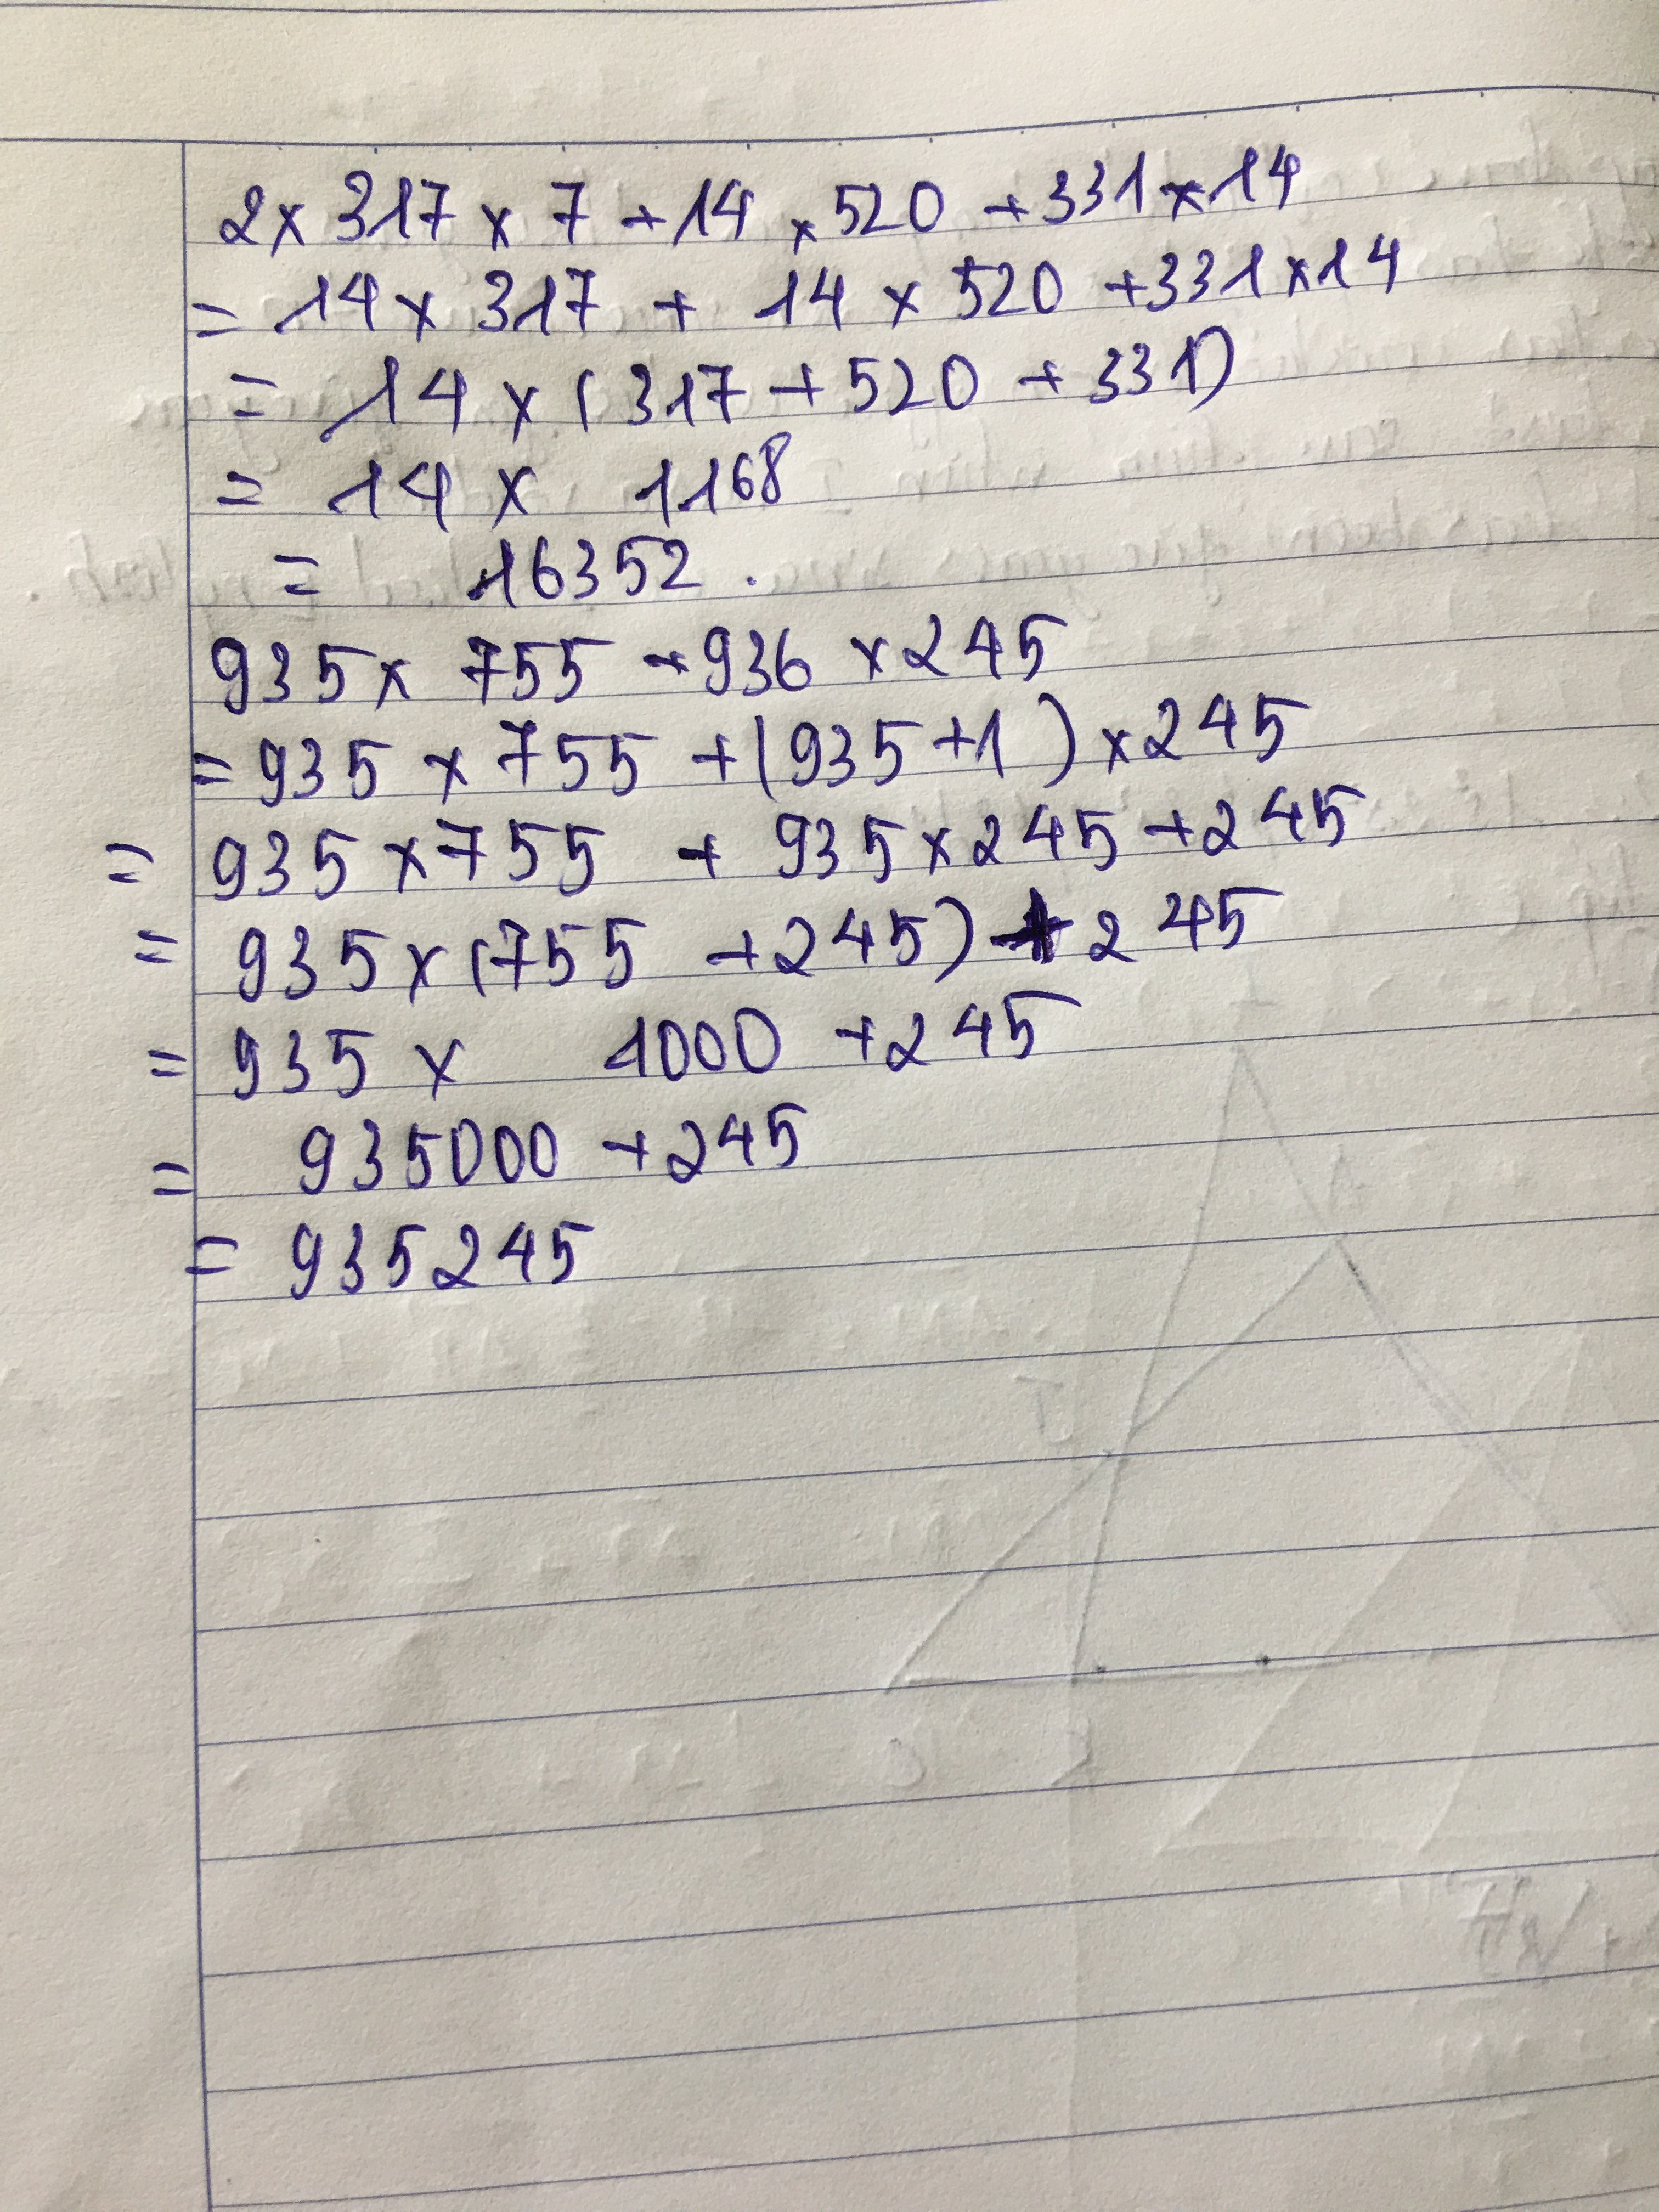 2 x 317 x 7 + 14 x 520 + 331 x 14
= 14 x 317 + 14 x 520 + 331 x 14
= 14 x ( 317 + 520 + 331)
= 14 x 1168
= 16352 .
935 x 755 + 936 x 245
= 935 x 755 + (935 + 1 ) x 245
= 935 x 755 + 935 x 245 + 245
= 935 x (755 + 245) + 245
= 935 x 1000 + 245
= 935000 + 245
= 935245